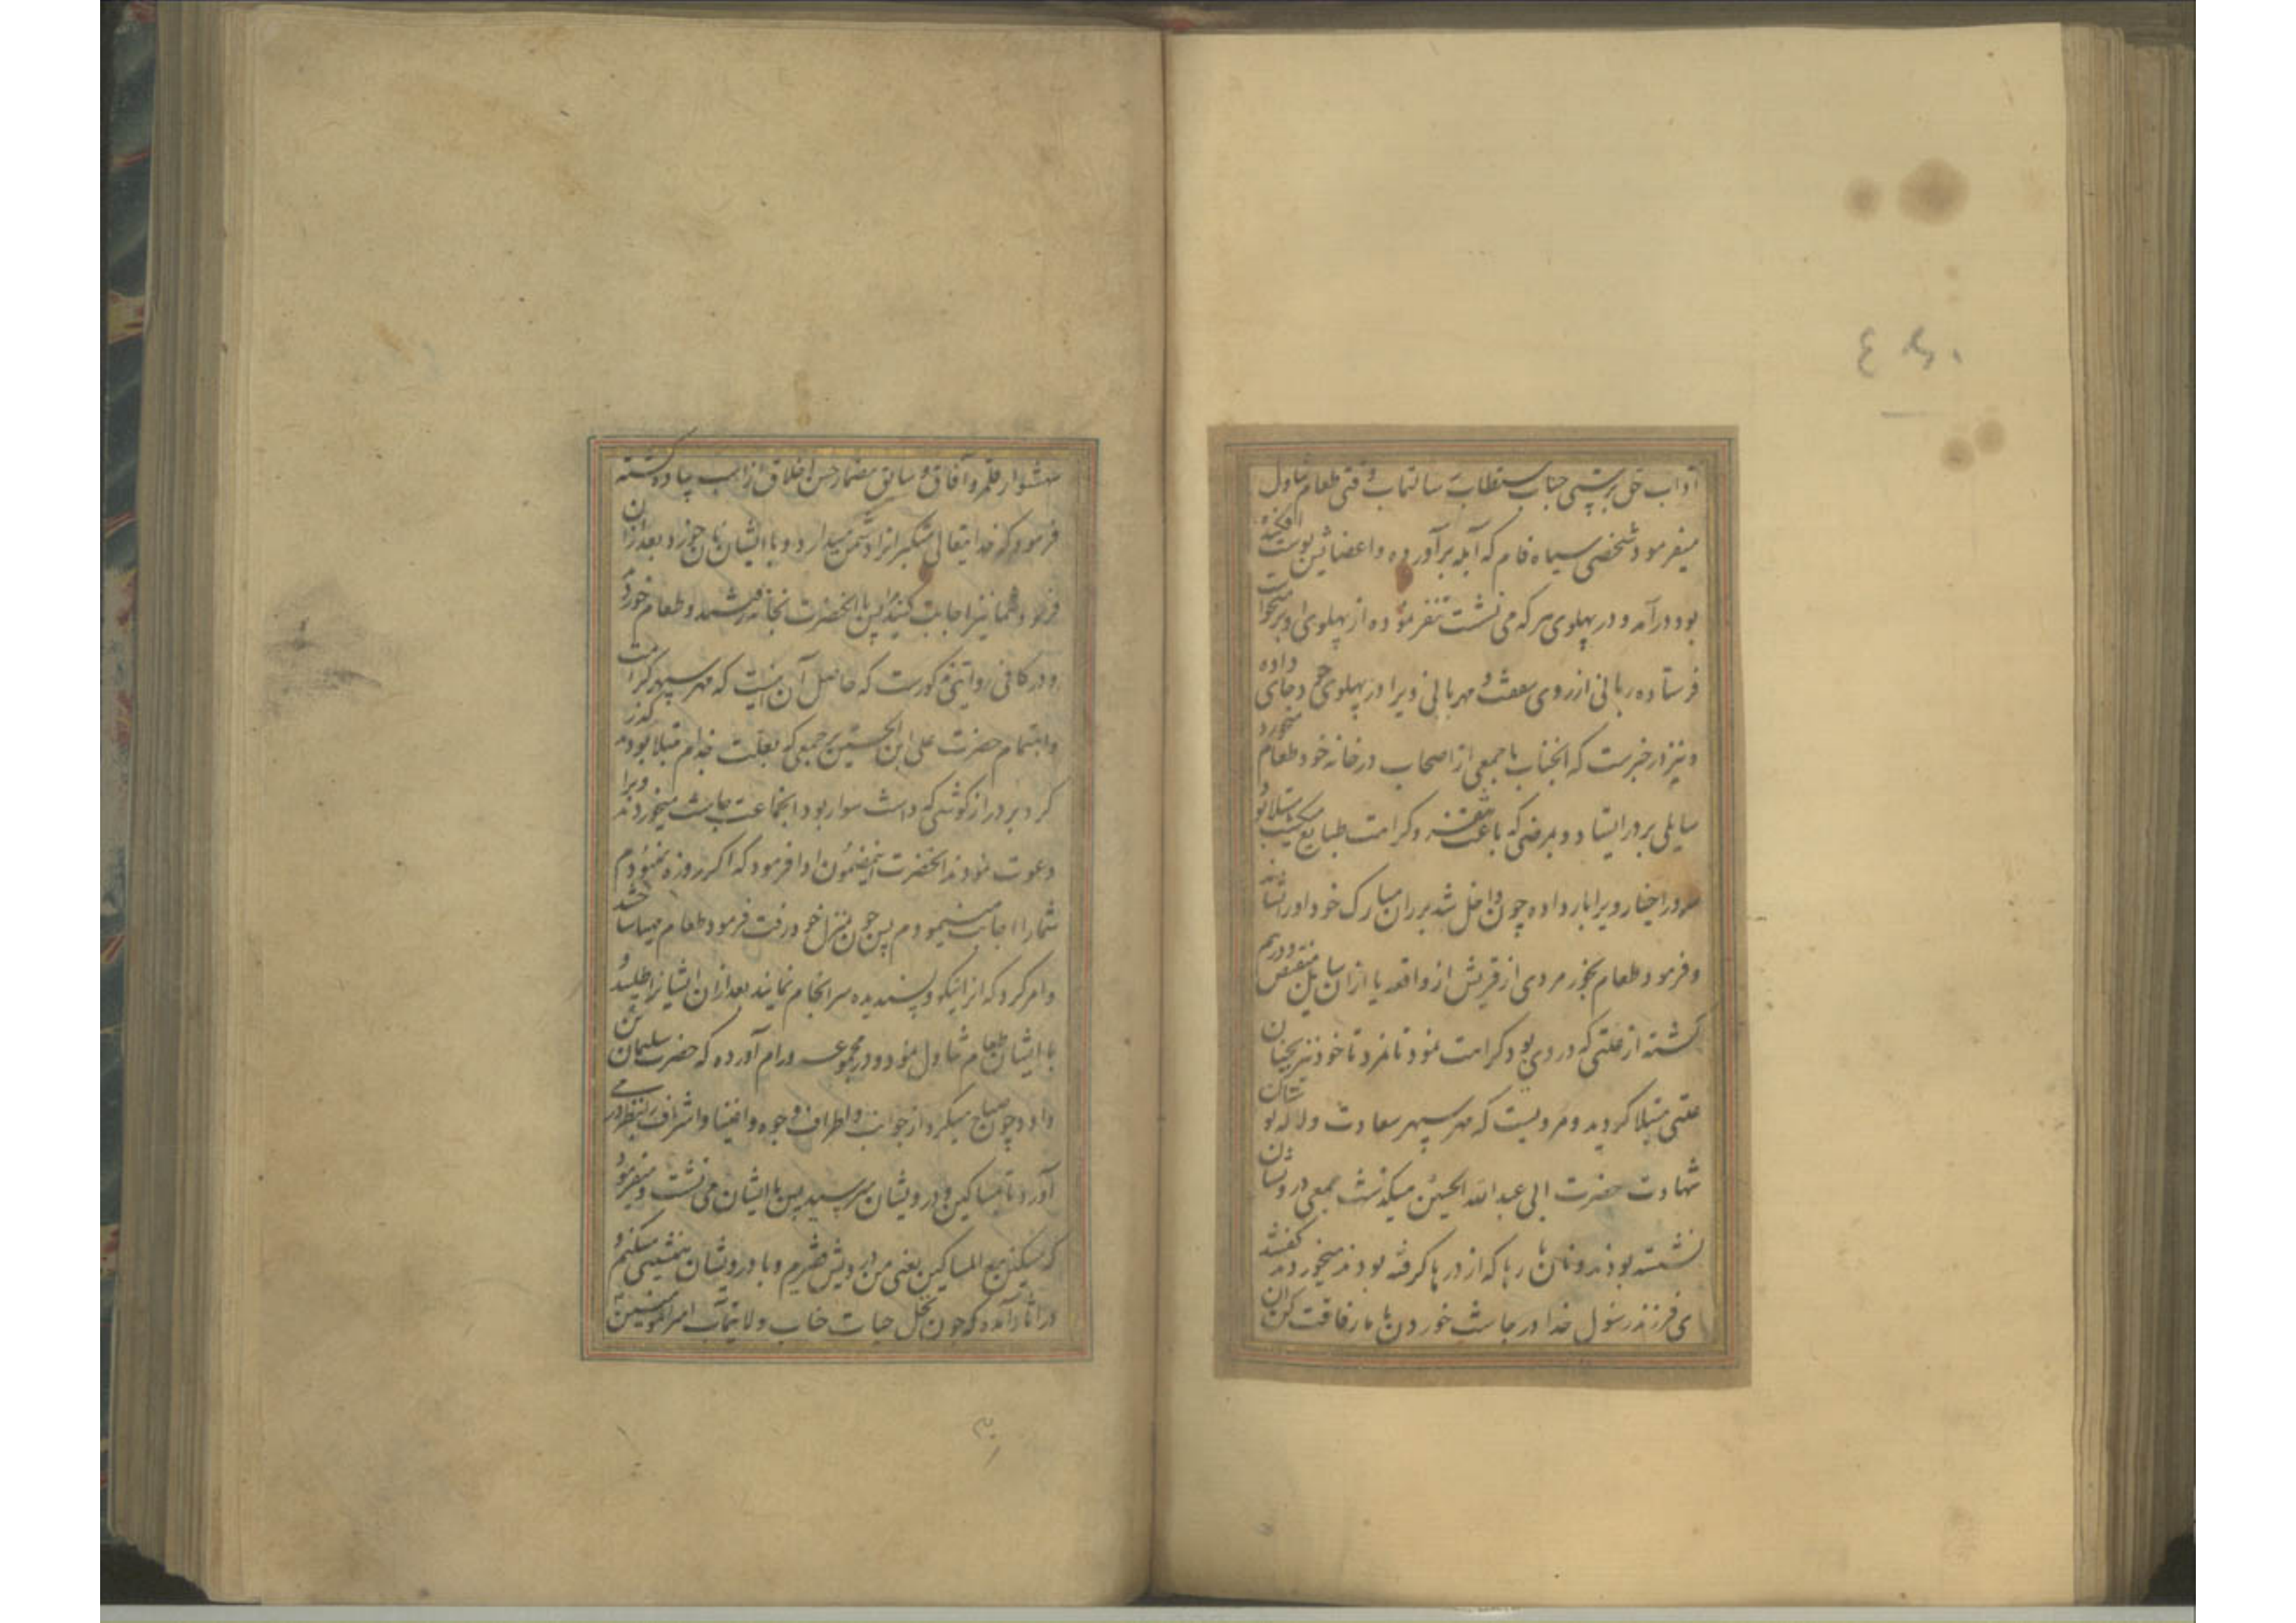 آداب حق پرستی جناب مستطاب رسالتمآب وقتی طعام تناول
میفرمود شخصی سیاه فام که آبله برآورده و اعضائش پوست افکنده
بود درآمد و در پهلوی هر که می نشست تنفر نموده از پهلوی او برمیخواست
فرستاده ربانی از روی شفقت و مهربانی ویرا در پهلوی خود جای داده
و نیز در خبرست که آنجناب با جمعی از اصحاب در خانه خود طعام میخورد
سایلی بر در ایستاد و بمرضی که باعث تنفر و کراهت طبایع مبتلا بود
ویرا بار داده چون داخل شد بر ران مبارک خود او را نشاند
و فرمود طعام بخور مردی از قریش از واقعه یا از آن سایل منقبض و درهم
گشته از علتی که در وی بود کراهت نمود تا نمرد تا خود نیز بچنان
علتی مبتلا گردید و مرویست که مهر سپهر سعادت و لاله
شهادت حضرت ابی عبد الله الحسین میگذشت جمعی درویشان
نشسته بودند و نان رها که از درها گرفته بودند میخوردند گفتند
ای فرزند رسول خدا در چاشت خوردن با ما رفاقت کن آن
شهسوار قلمرو آفاق و سابق مضمار حسن اخلاق از اسب پیاده گشته
فرمود که خدایتعالی متکبرانرا دشمن میدارد و با ایشان نان خورد بعد از آن
فرمود شما نیز اجابت کنید پس با آنحضرت بخانه رفتند و طعام خوردند
و در کافی روایتی مذکورست که حاصل آن اینست که مهر سپهر کرامت
و اهتمام حضرت علی ابن الحسین بر جمعی که بعلت جذام مبتلا بودند گذر
کرد بر درازگوشی که داشت سوار بود آنجماعت چاشت میخوردند ویرا
دعوت نمودند آنحضرت اینمضمون ادا فرمود که اگر روزه نمیبودم
شما را اجابت مینمودم پس چون بمنزل خود رفت فرمود طعام مهیا ساختند
و امر کرد که آنرا نیکو و پسندیده سرانجام نمایند بعد از آن ایشانرا طلبید و
با ایشان طعام تناول نمود و در مجموعه ورام آورده که حضرت سلیمان بن
داود چون صباح میکرد از جوانب و اطراف وجوه و اغنیا و اشراف را بنظر در می
آورد تا بمساکین و درویشان میرسید پس با ایشان می نشست و میفرمود
که مسکین مع المساکین یعنی من درویش فقیرم و با درویشان همنشینی میکنم و
در آثار آمده که چون نخل حیات جناب ولایتمآب امیرالمؤمنین